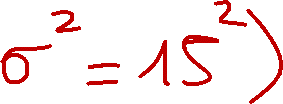 σ² = 15²)